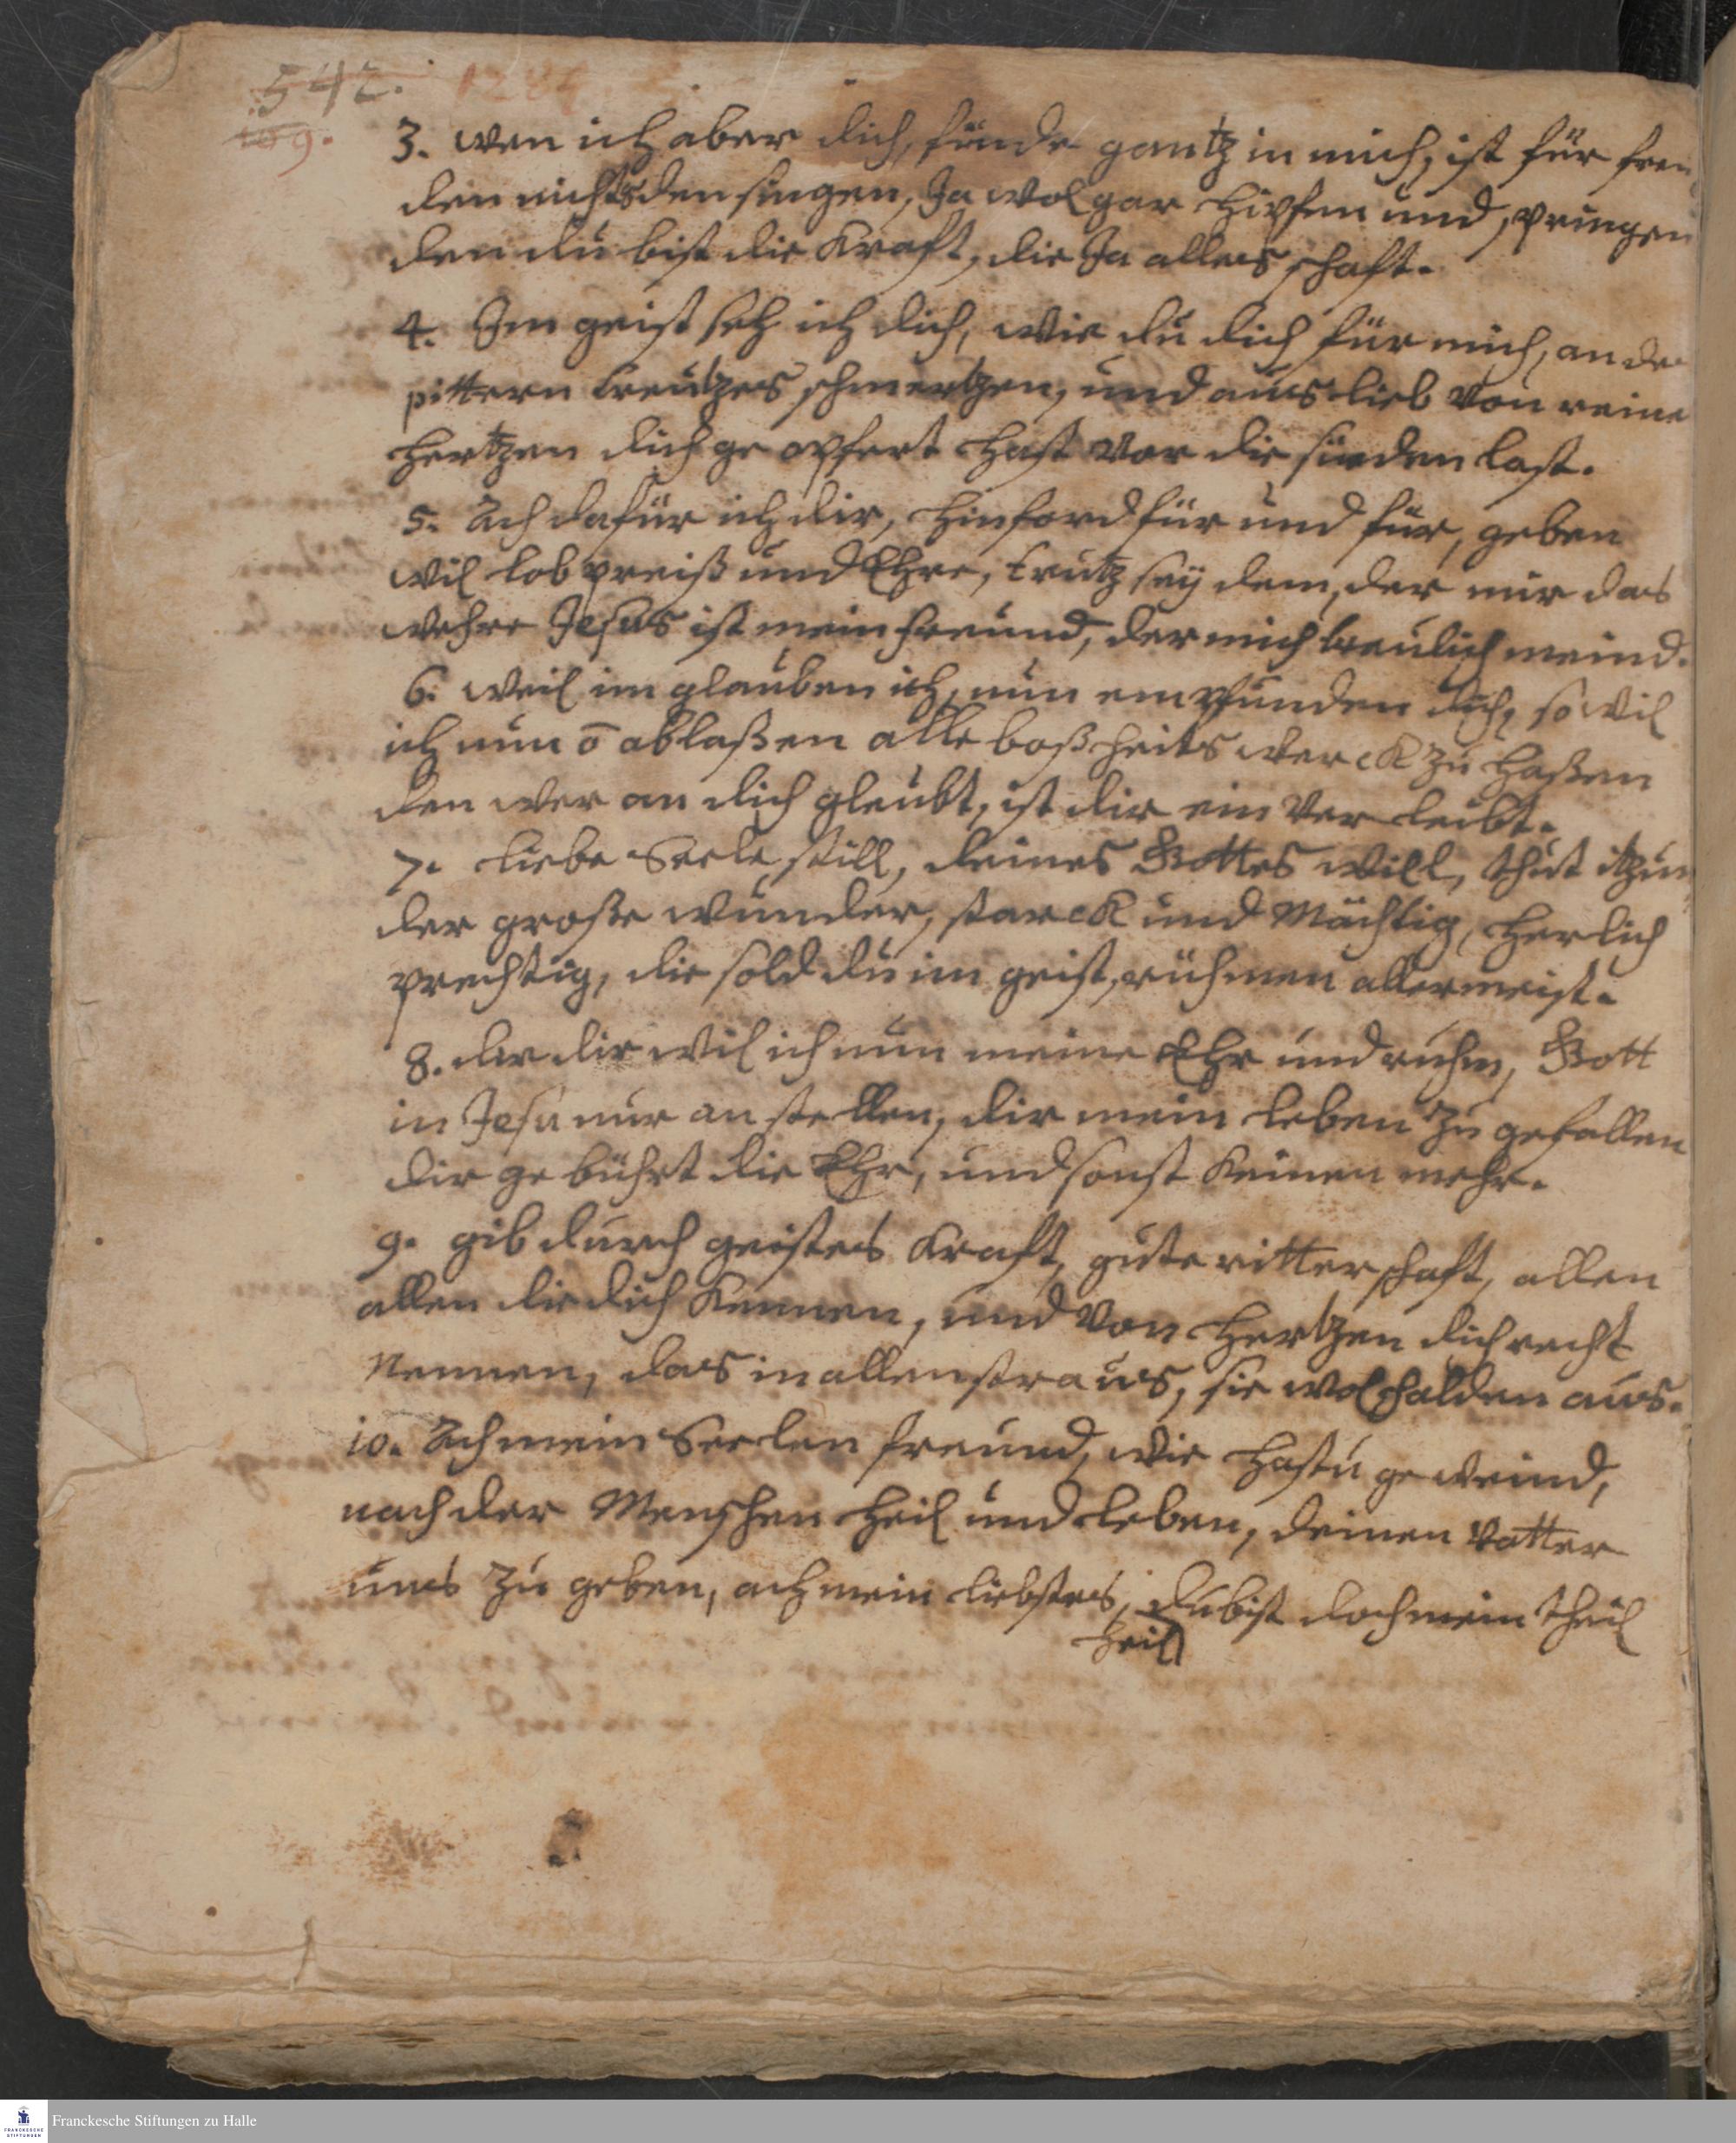 542. 1284
109.
3. wen ich aber dich, finde gantz in mich, ist für freu
den nichts den singen, Ja wol gar hipfen und springen
den du bist die Kraft, die Ja alles schaft.
4. Im geist seh ich dich, wie du dich für mich, an des
pittern Creutzes schmertzen, und aus lieb von reine
hertzen dich ge opfert hast vor die sünden last.
5. Ach dafür ich dir, hinford für und für, geben
wil lob preiß und Ehre, trutz sey dem, der mir das
wehre Jesus ist mein freund, der mich treulich meind.
6. weil im glauben ich, nun empfunden dich, so wil
ich nun o ablaßen alle boßheits werck zu haßen
den wer an dich gleubt, ist dir ein ver leibt.
7. liebe Seele still, deines Gottes will, thut itzun
der große wunder, starck und Mächtig, herlich
prechtig, die sold du im geist, rühmen allermeist.
8. dir wil ich nun meine Ehr und ruhm, Gott
in Jesu nur an stellen, dir mein leben zu gefallen
dir ge bührt die Ehr, und sonst Keinen mehr.
9. gib durch geistes Kraft, gute ritterschaft, allen
allen die dich Kennen, und von hertzen dich recht
Nennen, das in allen straus, sie wol halden aus.
10. Ach mein Seelen freund, wie hastu geweind,
nach der Menschen heil und leben, deinen vatter
uns zu geben, ach mein liebstes, du bist doch mein theil
heil
Franckesche Stiftungen zu Halle
FRANCKESCHE STIFTUNGEN